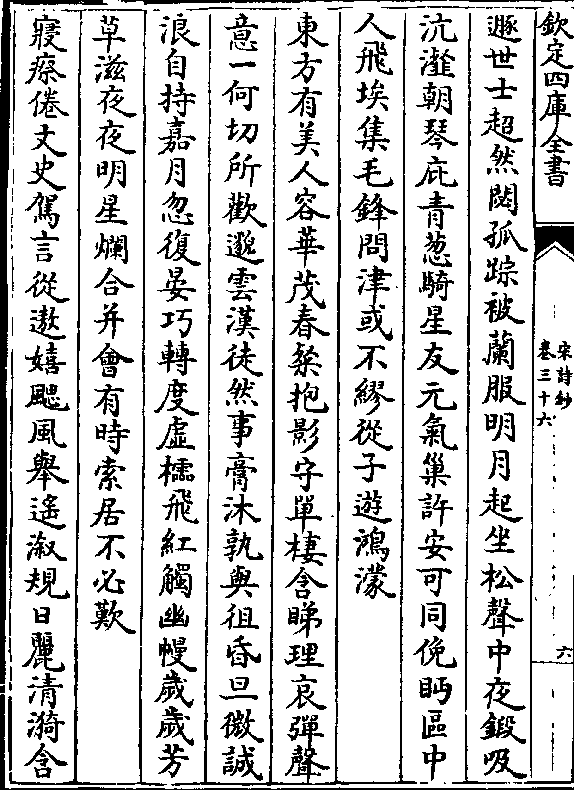 欽定四庫全書
宋詩鈔
卷三十六
六
遯世士超然閟孤踪被蘭服明月起坐松聲中夜鍛吸
沆瀣朝琴庇青葱騎星友元氣巢許安可同俛眄區中
人飛埃集毛鋒問津或不繆從子遊鴻濛
東方有美人容華茂春粲抱影守單棲含睇理哀彈聲
意一何切所歡邈雲漢徒然事膏沐孰與徂昏旦微誠
浪自持嘉月忽復晏巧轉度虛櫺飛紅觸幽幔歲歲芳
草滋夜夜明星爛合并會有時索居不必歎
寢瘵倦文史駕言從遨嬉颸風舉遙溆規日麗清漪含